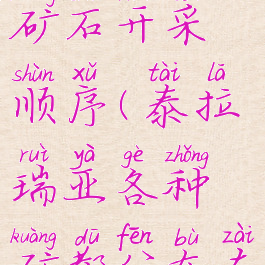 矿石开采
shùn xǔ tài lā
顺序(泰拉
ruì yà gè zhǒng
瑞亚各种
kuàng dū fēn bù zài
矿都分布在